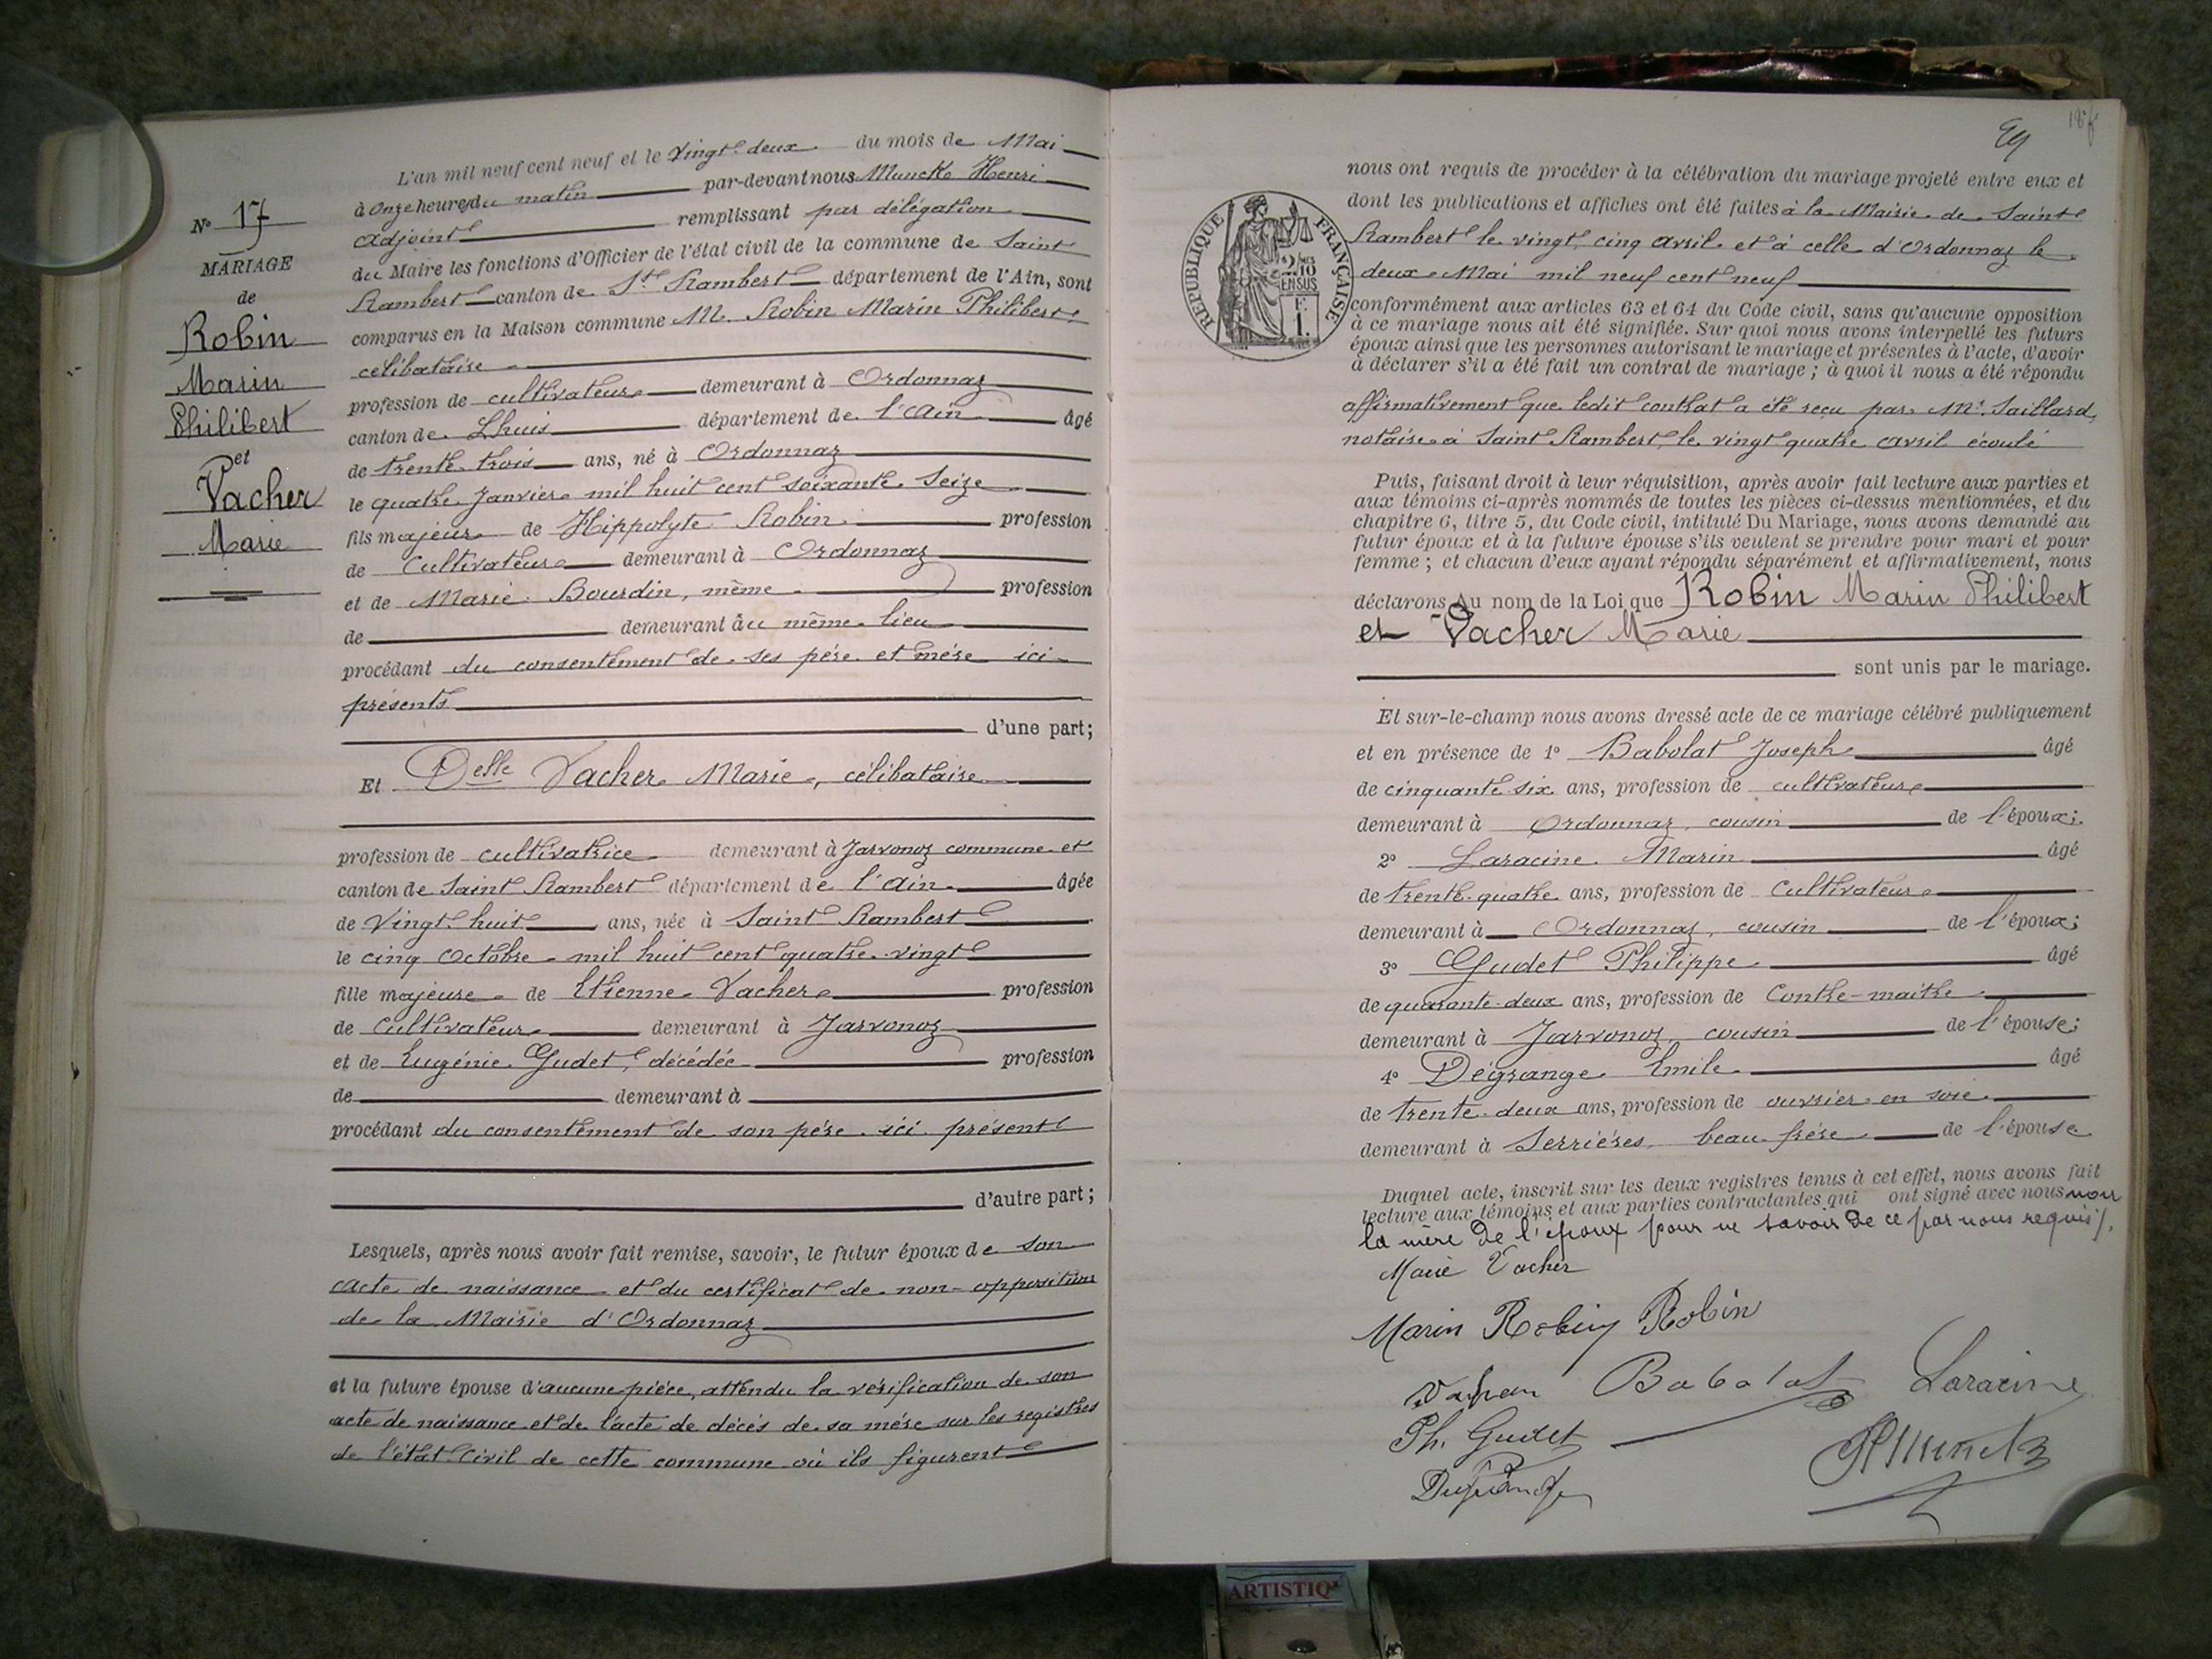 N° 17
MARIAGE
de
Robin
Marin
Philibert
et
Vacher
Marie
L'an mil neuf cent neuf et le vingt-deux du mois de Mai
à onze heures du matin par-devant nous Munck Henri
adjoint remplissant par délégation
du Maire les fonctions d'Officier de l'état civil de la commune de Saint
Rambert canton de St Rambert département de l'Ain, sont
comparus en la Maison commune M. Robin Marin Philibert,
célibataire
profession de cultivateur demeurant à Ordonnaz
canton de Lhuis département de l'Ain âgé
de trente-trois ans, né à Ordonnaz
le quatre Janvier mil huit cent soixante-seize
fils majeur de Hippolyte Robin profession
de Cultivateur demeurant à Ordonnaz
et de Marie Bourdin, même profession
de demeurant au même lieu
procédant du consentement de ses père et mère ici
présents
d'une part;
Et Delle Vacher Marie, célibataire
profession de cultivatrice demeurant à Javornoz commune et
canton de Saint Rambert département de l'Ain âgée
de vingt-huit ans, née à Saint Rambert
le cinq Octobre mil huit cent quatre-vingt
fille majeure de Etienne Vacher profession
de Cultivateur demeurant à Javornoz
et de Eugénie Gudet, décédée profession
de demeurant à
procédant du consentement de son père ici présent
d'autre part;
Lesquels, après nous avoir fait remise, savoir, le futur époux de son
acte de naissance et du certificat de non-opposition
de la Mairie d'Ordonnaz
et la future épouse d'aucune pièce, attendu la vérification de son
acte de naissance et de l'acte de décès de sa mère sur les registres
de l'état-civil de cette commune où ils figurent
89
RÉPUBLIQUE FRANÇAISE
2/10
EN SUS
F.
1.
nous ont requis de procéder à la célébration du mariage projeté entre eux et
dont les publications et affiches ont été faites à la Mairie de Saint
Rambert le vingt-cinq avril et à celle d'Ordonnaz le
deux Mai mil neuf cent neuf
conformément aux articles 63 et 64 du Code civil, sans qu'aucune opposition
à ce mariage nous ait été signifiée. Sur quoi nous avons interpellé les futurs
époux ainsi que les personnes autorisant le mariage et présentes à l'acte, d'avoir
à déclarer s'il a été fait un contrat de mariage ; à quoi il nous a été répondu
affirmativement que ledit contrat a été reçu par Me Saillard,
notaire à Saint Rambert, le vingt-quatre avril écoulé
Puis, faisant droit à leur réquisition, après avoir fait lecture aux parties et
aux témoins ci-après nommés de toutes les pièces ci-dessus mentionnées, et du
chapitre 6, titre 5, du Code civil, intitulé Du Mariage, nous avons demandé au
futur époux et à la future épouse s'ils veulent se prendre pour mari et pour
femme ; et chacun d'eux ayant répondu séparément et affirmativement, nous
déclarons Au nom de la Loi que Robin Marin Philibert
et Vacher Marie
sont unis par le mariage.
Et sur-le-champ nous avons dressé acte de ce mariage célébré publiquement
et en présence de 1° Babolat Joseph âgé
de cinquante-six ans, profession de cultivateur
demeurant à Ordonnaz, cousin de l'époux;
2° Laracine Marin âgé
de trente-quatre ans, profession de Cultivateur
demeurant à Ordonnaz, cousin de l'époux;
3° Gudet Philippe âgé
de quarante-deux ans, profession de Contre-maître
demeurant à Javornoz, cousin de l'épouse;
4° Dégrange Emile âgé
de trente-deux ans, profession de ouvrier en soie
demeurant à Serrières, beau-frère de l'épouse
Duquel acte, inscrit sur les deux registres tenus à cet effet, nous avons fait
lecture aux témoins et aux parties contractantes qui ont signé avec nous non
la mère de l'époux pour ne savoir de ce par nous requis.
Marie Vacher
Marin Robin Robin
Vacher Babolat Laracine
Ph. Gudet
HMunck
ARTISTIQ